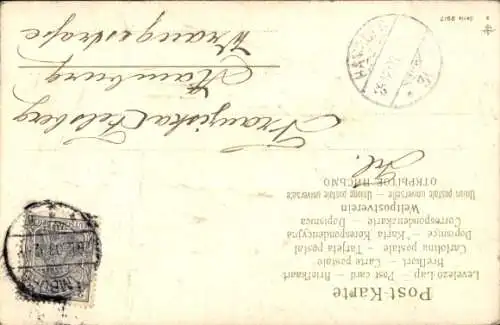 Post-Karte
Levelező-Lap — Post card — Briefkaart
Brefkort — Carte postale
Cartolina postale — Tarjeta postal
Dopisnice — Karta Korespondencyjna
Correspondenzkarte — Dopisnica
Weltpostverein
Union postale universelle — Unione postale universale
ОТКРЫТОЕ ПИСЬМО
Frl.
Franziska Felsberg
Hamburg
Wrangelstraße
HAMBURG
Serie